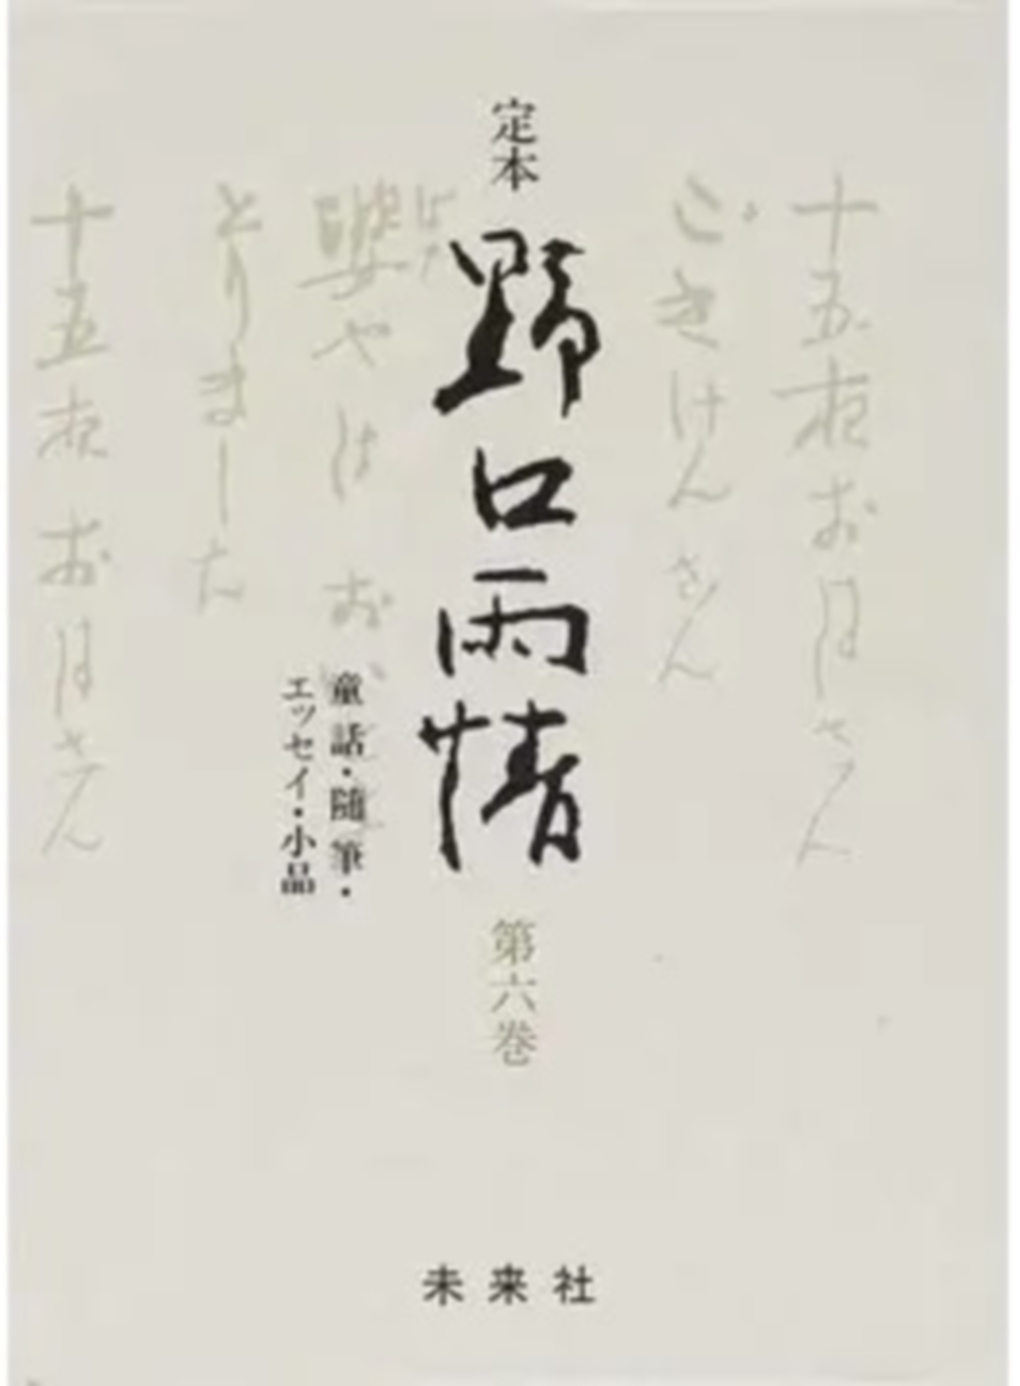 定本
野口雨情
童話・随筆・
エッセイ・小品
第六巻
未来社
十五夜お月さん
ごきげんさん
やは お
とりました
十五夜お月さん